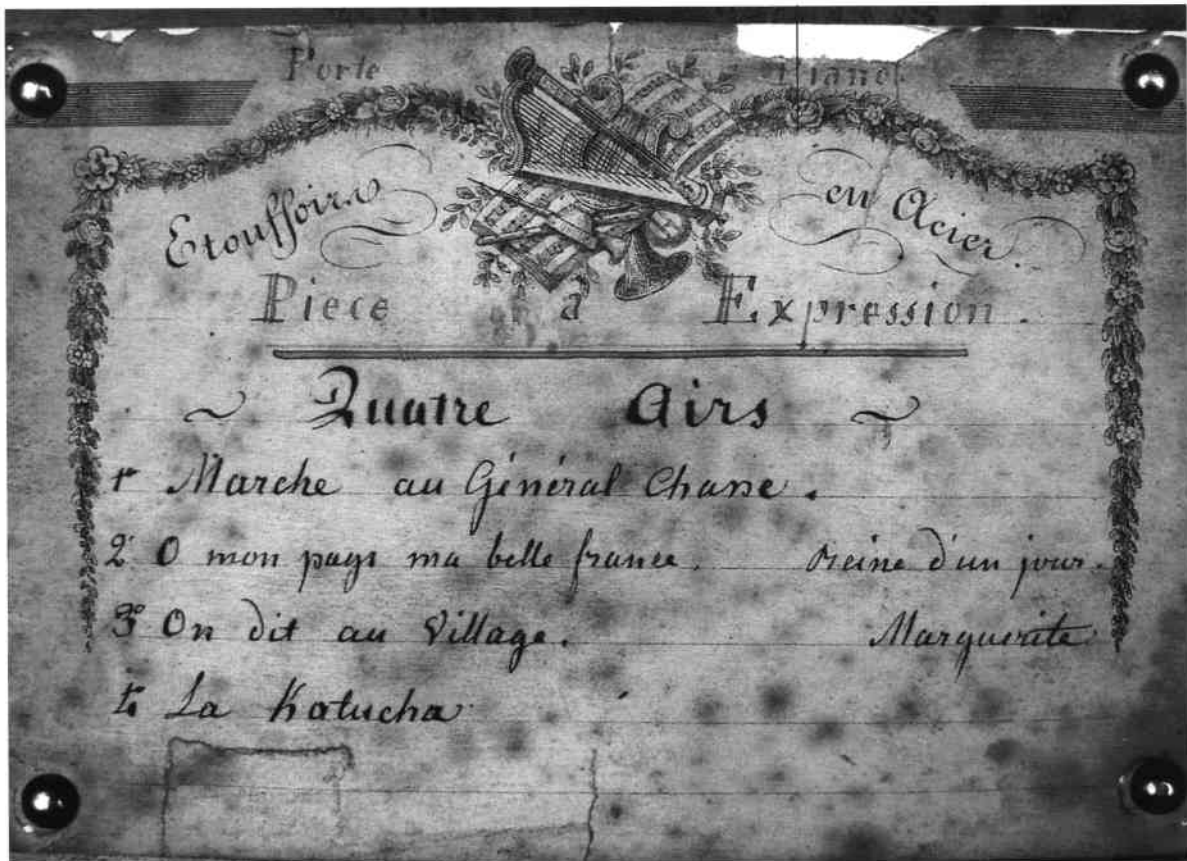 Forte Piano
Etouffoirs en Acier.
Piece à Expression.
~ Quatre Airs ~
1º Marche au Général Chasse.
2º O mon pays ma belle france. Reine d'un jour.
3º On dit au Village. Marguerite
4º La Katucha